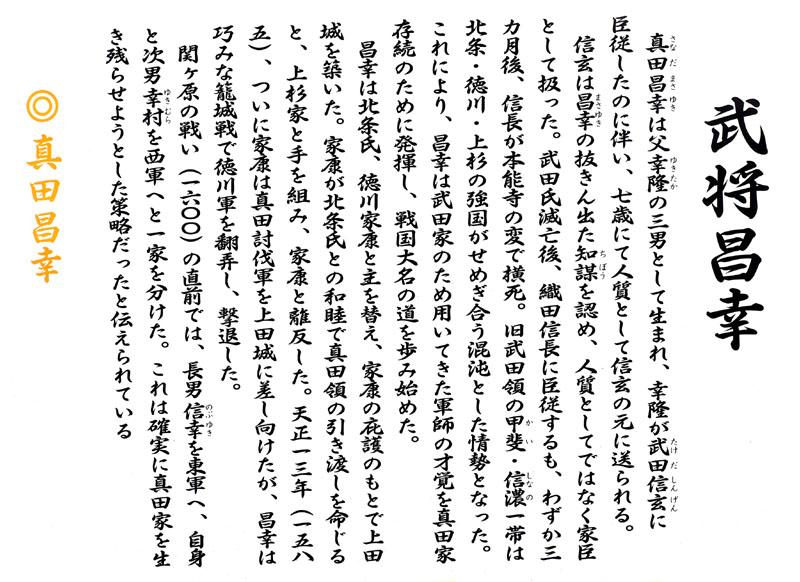 武将昌幸
真田昌幸は父幸隆の三男として生まれ、幸隆が武田信玄に
臣従したのに伴い、七歳にて人質として信玄の元に送られる。
信玄は昌幸の抜きん出た知謀を認め、人質としてではなく家臣
として扱った。武田氏滅亡後、織田信長に臣従するも、わずか三
カ月後、信長が本能寺の変で横死。旧武田領の甲斐・信濃一帯は
北条・徳川・上杉の強国がせめぎ合う混沌とした情勢となった。
これにより、昌幸は武田家のため用いてきた軍師の才覚を真田家
存続のために発揮し、戦国大名の道を歩み始めた。
昌幸は北条氏、徳川家康と主を替え、家康の庇護のもとで上田
城を築いた。家康が北条氏との和睦で真田領の引き渡しを命じる
と、上杉家と手を組み、家康と離反した。天正一三年（一五八
五）、ついに家康は真田討伐軍を上田城に差し向けたが、昌幸は
巧みな籠城戦で徳川軍を翻弄し、撃退した。
関ヶ原の戦い（一六〇〇）の直前では、長男信幸を東軍へ、自身
と次男幸村を西軍へと一家を分けた。これは確実に真田家を生
き残らせようとした策略だったと伝えられている
◎真田昌幸